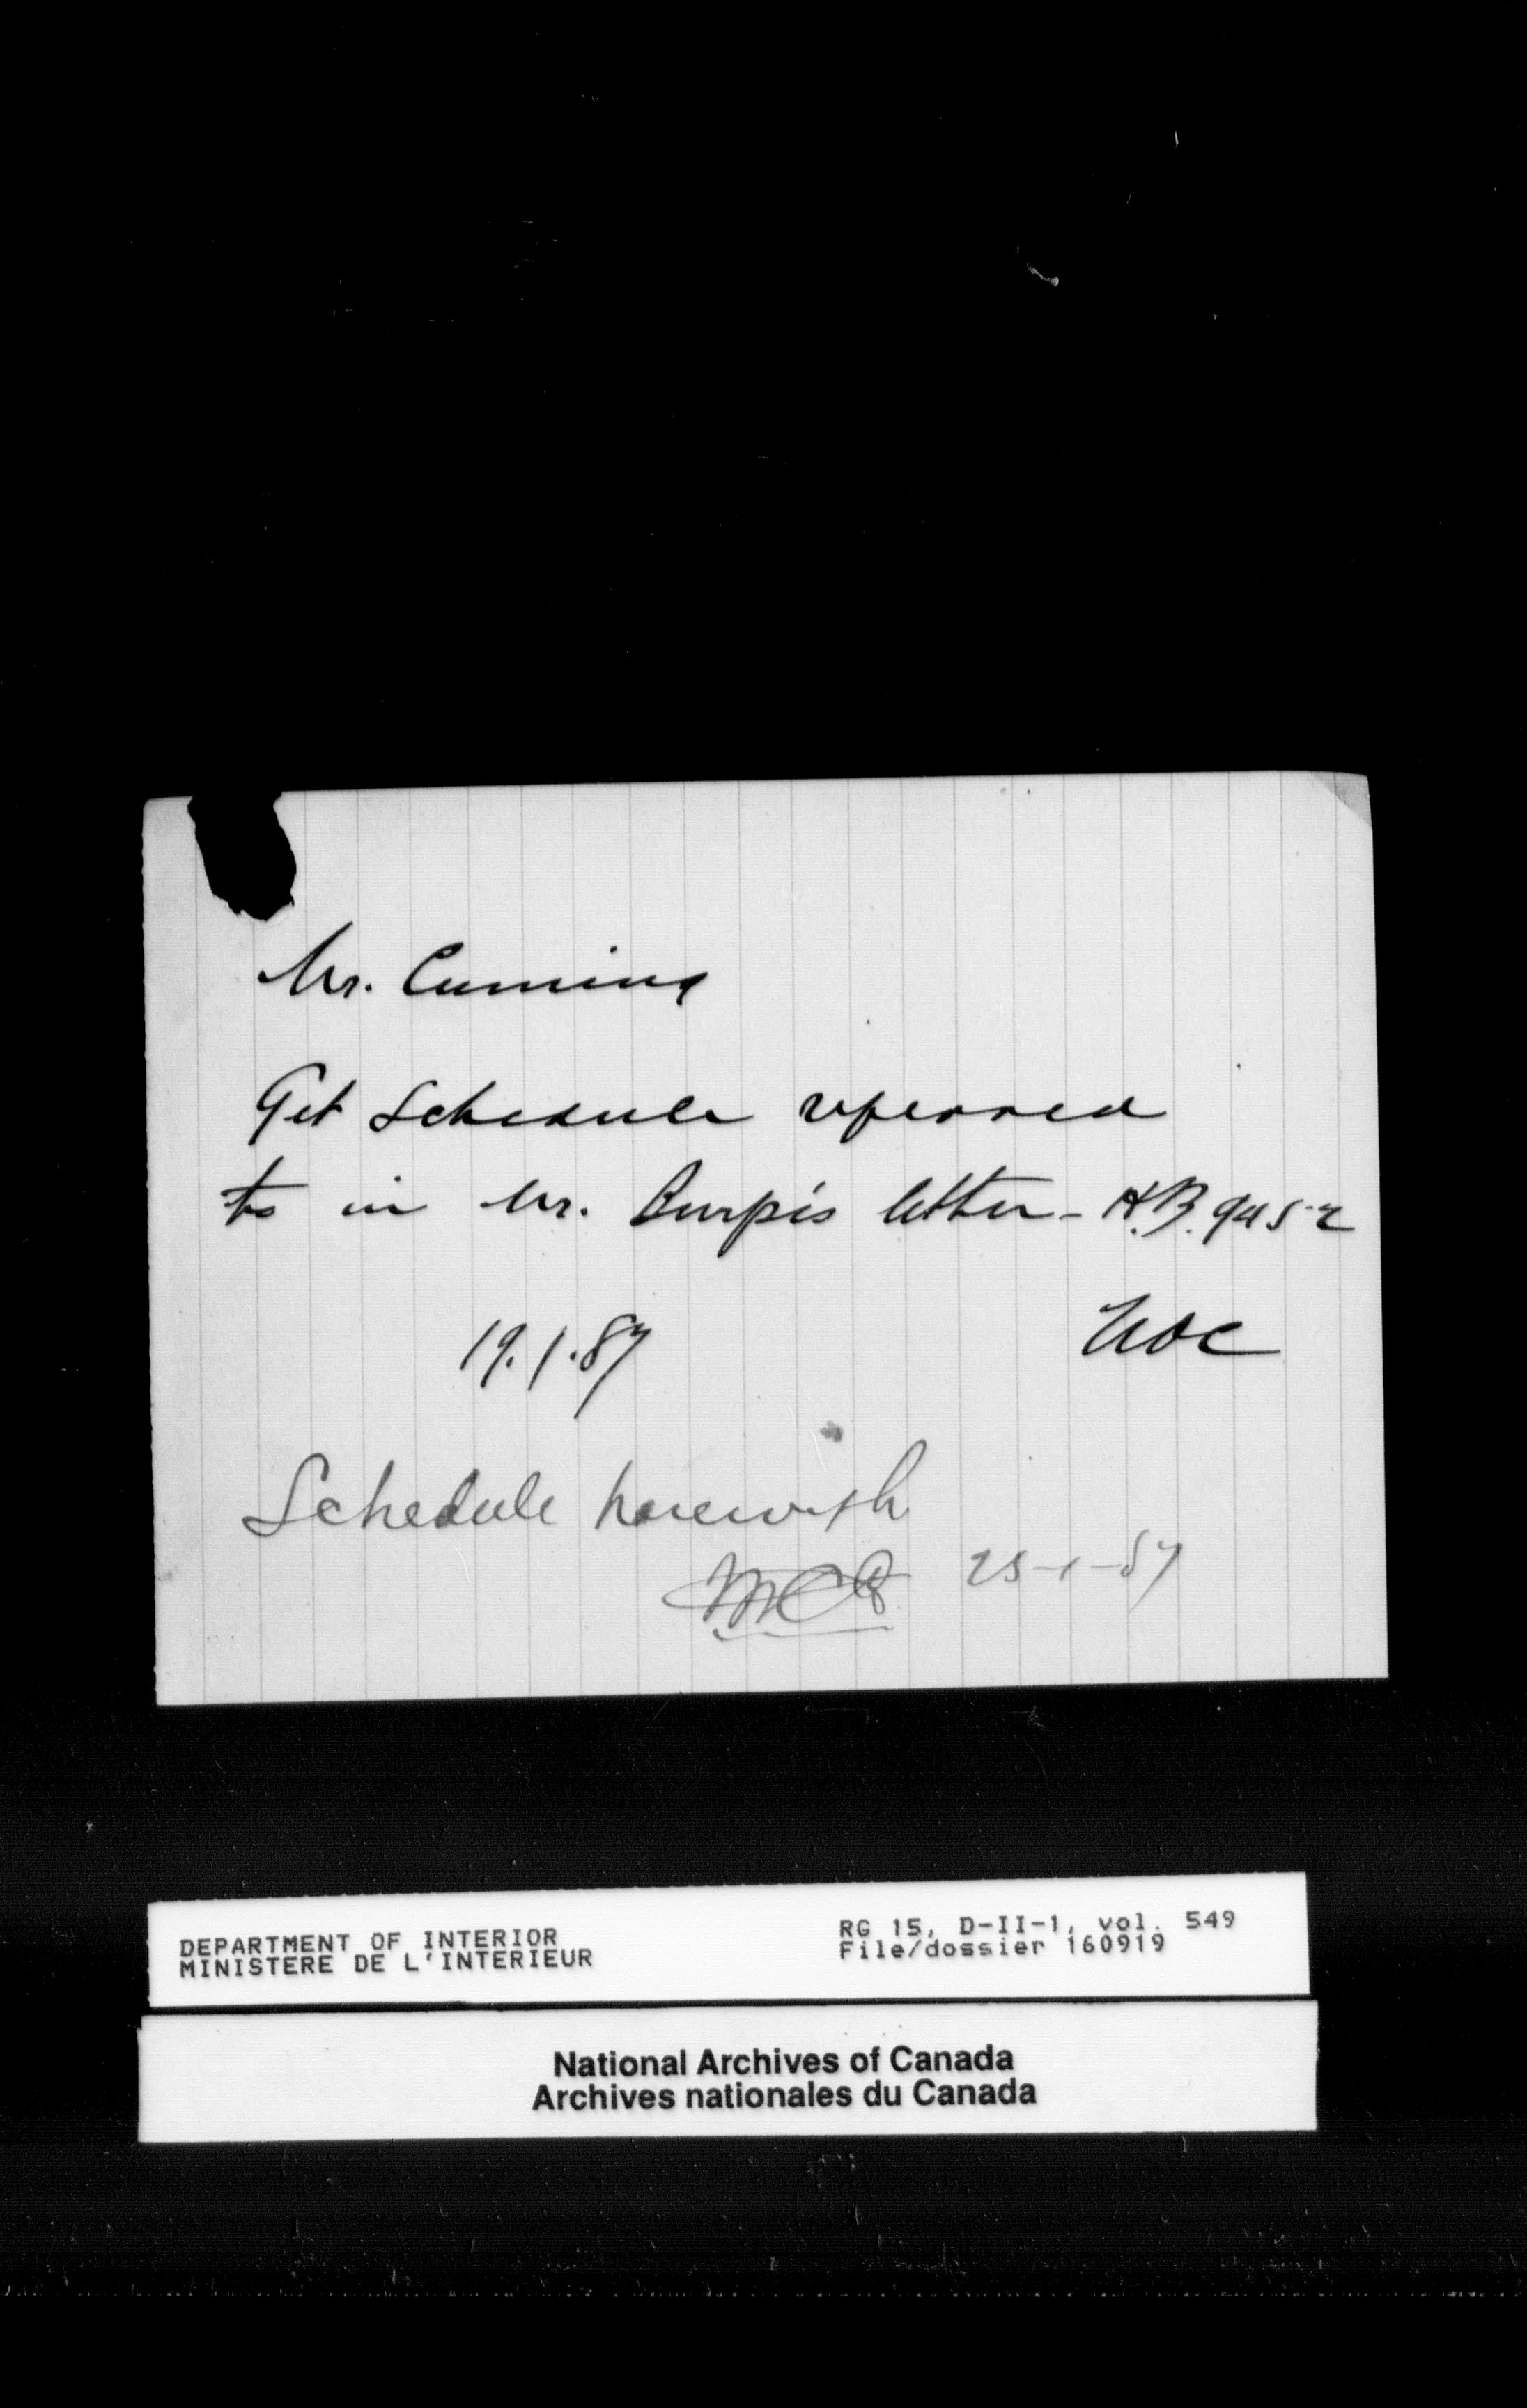 Mr. Cuming
Get Schedule referred
to in Mr. Burpé's letter - H.B. 9452
19.1.87
Schedule herewith
25-1-87
DEPARTMENT OF INTERIOR
MINISTERE DE L'INTERIEUR
RG 15, D-II-1, vol. 549
File/dossier 160919
National Archives of Canada
Archives nationales du Canada